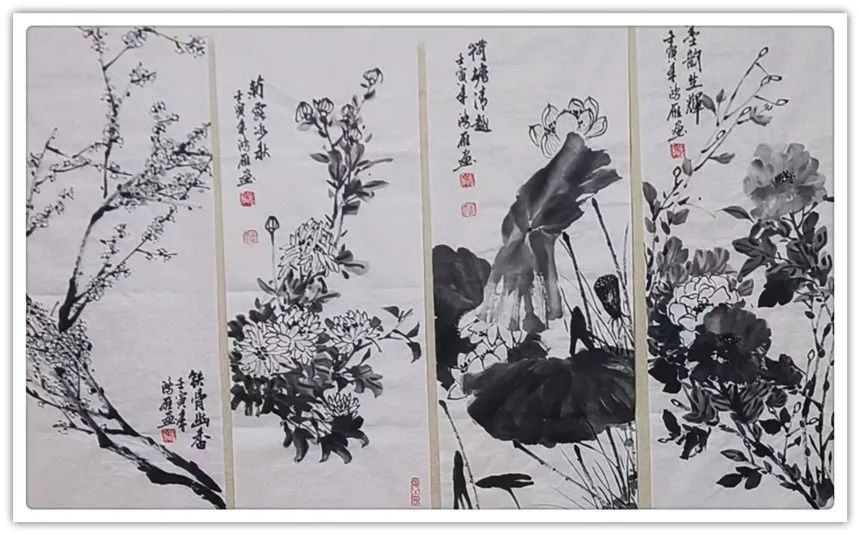 铁骨幽香
壬寅年
鸿雁画
露 秋
壬寅年鸿雁画
荷塘清趣
壬寅年鸿雁画
墨韵生辉
壬寅年鸿雁画